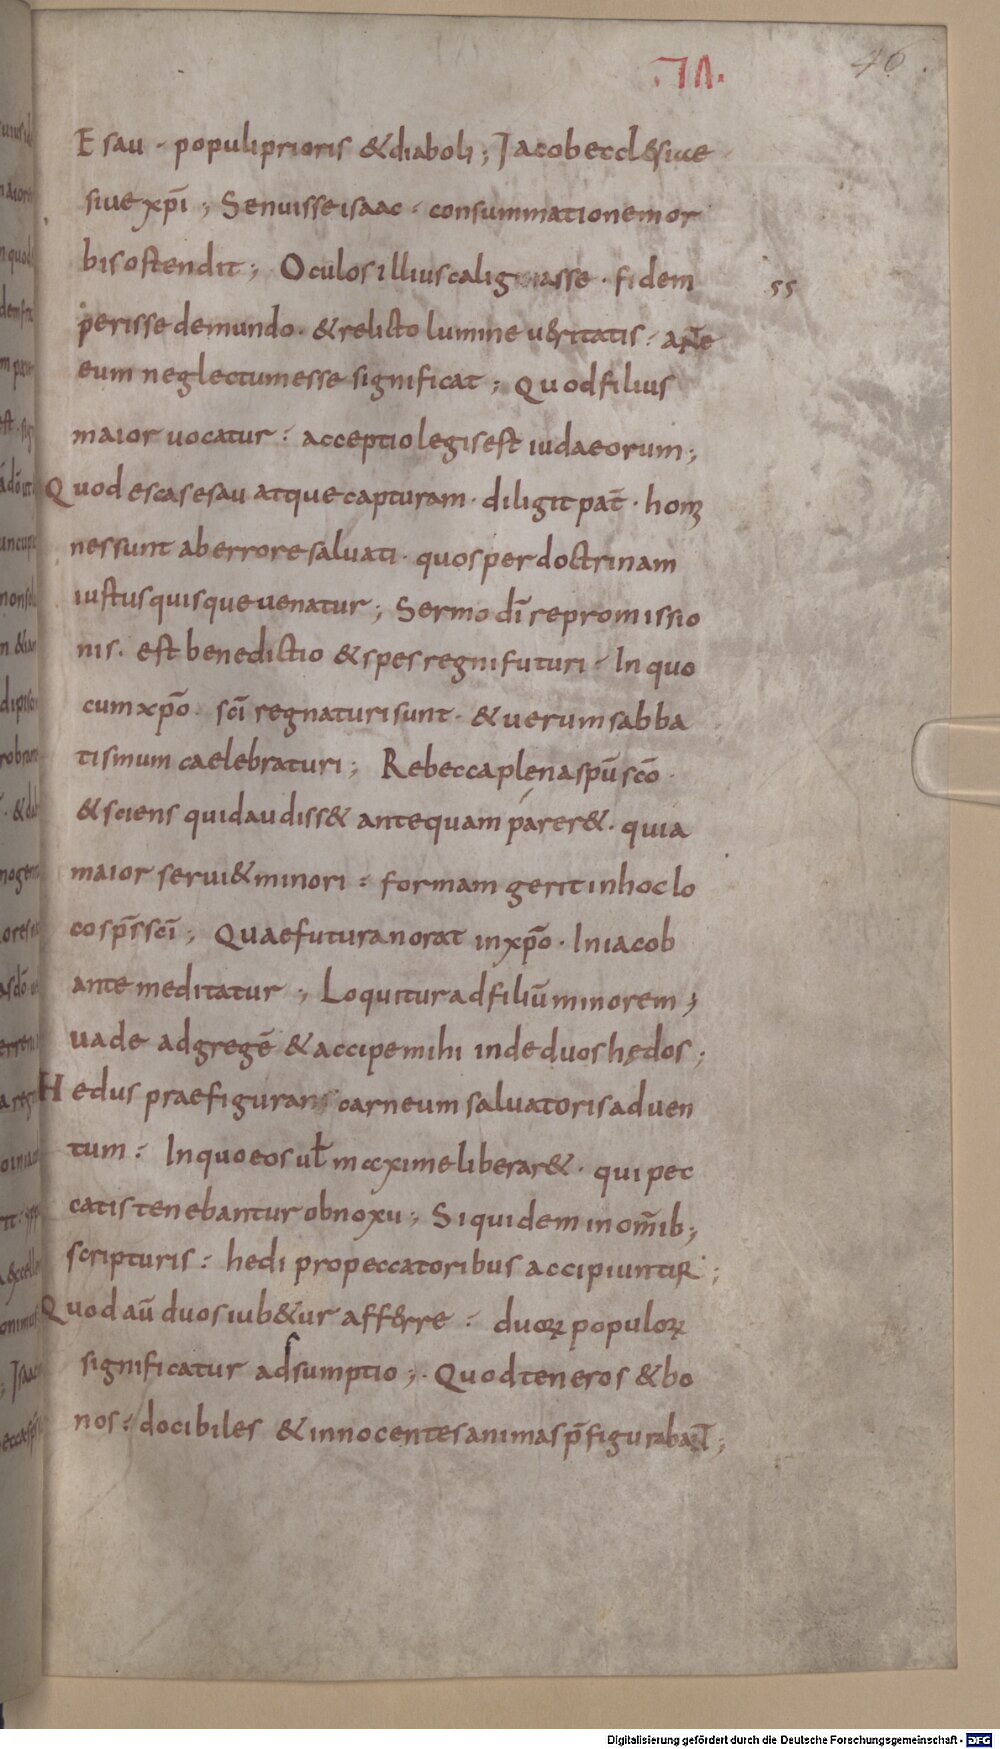 46
Esau · populi prioris & diaboli ; Jacob eccl&siae
siue xp̄i ; Senuisse isaac · consummationem or
bis ostendit ; Oculos illius caligasse · fidem
55
perisse de mundo · & relicto lumine u&ritatis · ante
eum neglectum esse significat ; Quod filius
maior uocatur · acceptio legis est iudaeorum ;
Quod escas esau atque capturam · diligit pat̄ · homi
nes sunt ab errore saluati · quos per doctrinam
iustus quisque uenatur ; Sermo dī repromissio
nis · est benedictio & spes regni futuri · In quo
cum xp̄o · sc̄i regnaturi sunt · & uerum sabba
tismum caelebraturi ; Rebecca plena spū sc̄o ·
& sciens quid audiss& antequam parer& · quia
maior serui& minori · formam gerit in hoc lo
co sp̄s sc̄i ; Quae futura norat in xp̄o · In iacob
ante meditatur ; Loquitur ad filiū minorem ;
uade ad gregē & accipe mihi inde duos hędos ;
Hedus praefigurans carneum saluatoris aduen
tum · In quo eos ul̄ maxime liberar& · qui pec
catis tenebantur obnoxii ; Siquidem in om̄ib ;
scripturis · hedi pro peccatoribus accipiuntur ;
Quod aū duos iub&ur aff&rre · duoꝝ populoꝝ
significatur adsumptio ; Quod teneros & bo
nos · docibiles & innocentes animas p̄figurabat ;
Digitalisierung gefördert durch die Deutsche Forschungsgemeinschaft - DFG